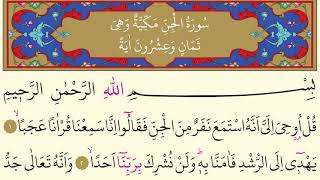 سُورَةُ الْجِنِّ مَكِّيَّةٌ وَهِيَ
ثَمَانٍ وَعِشْرُونَ اٰيَةً
بِسْمِ اللّٰهِ الرَّحْمٰنِ الرَّحٖيمِ
قُلْ اُوحِيَ اِلَيَّ اَنَّهُ اسْتَمَعَ نَفَرٌ مِنَ الْجِنِّ فَقَالُٓوا اِنَّا سَمِعْنَا قُرْاٰنًا عَجَبًاۙ ١
يَهْدٖٓي اِلَى الرُّشْدِ فَاٰمَنَّا بِهٖۜ وَلَنْ نُشْرِكَ بِرَبِّنَٓا اَحَدًاۙ ٢ وَاَنَّهُ تَعَالٰى جَدُّ